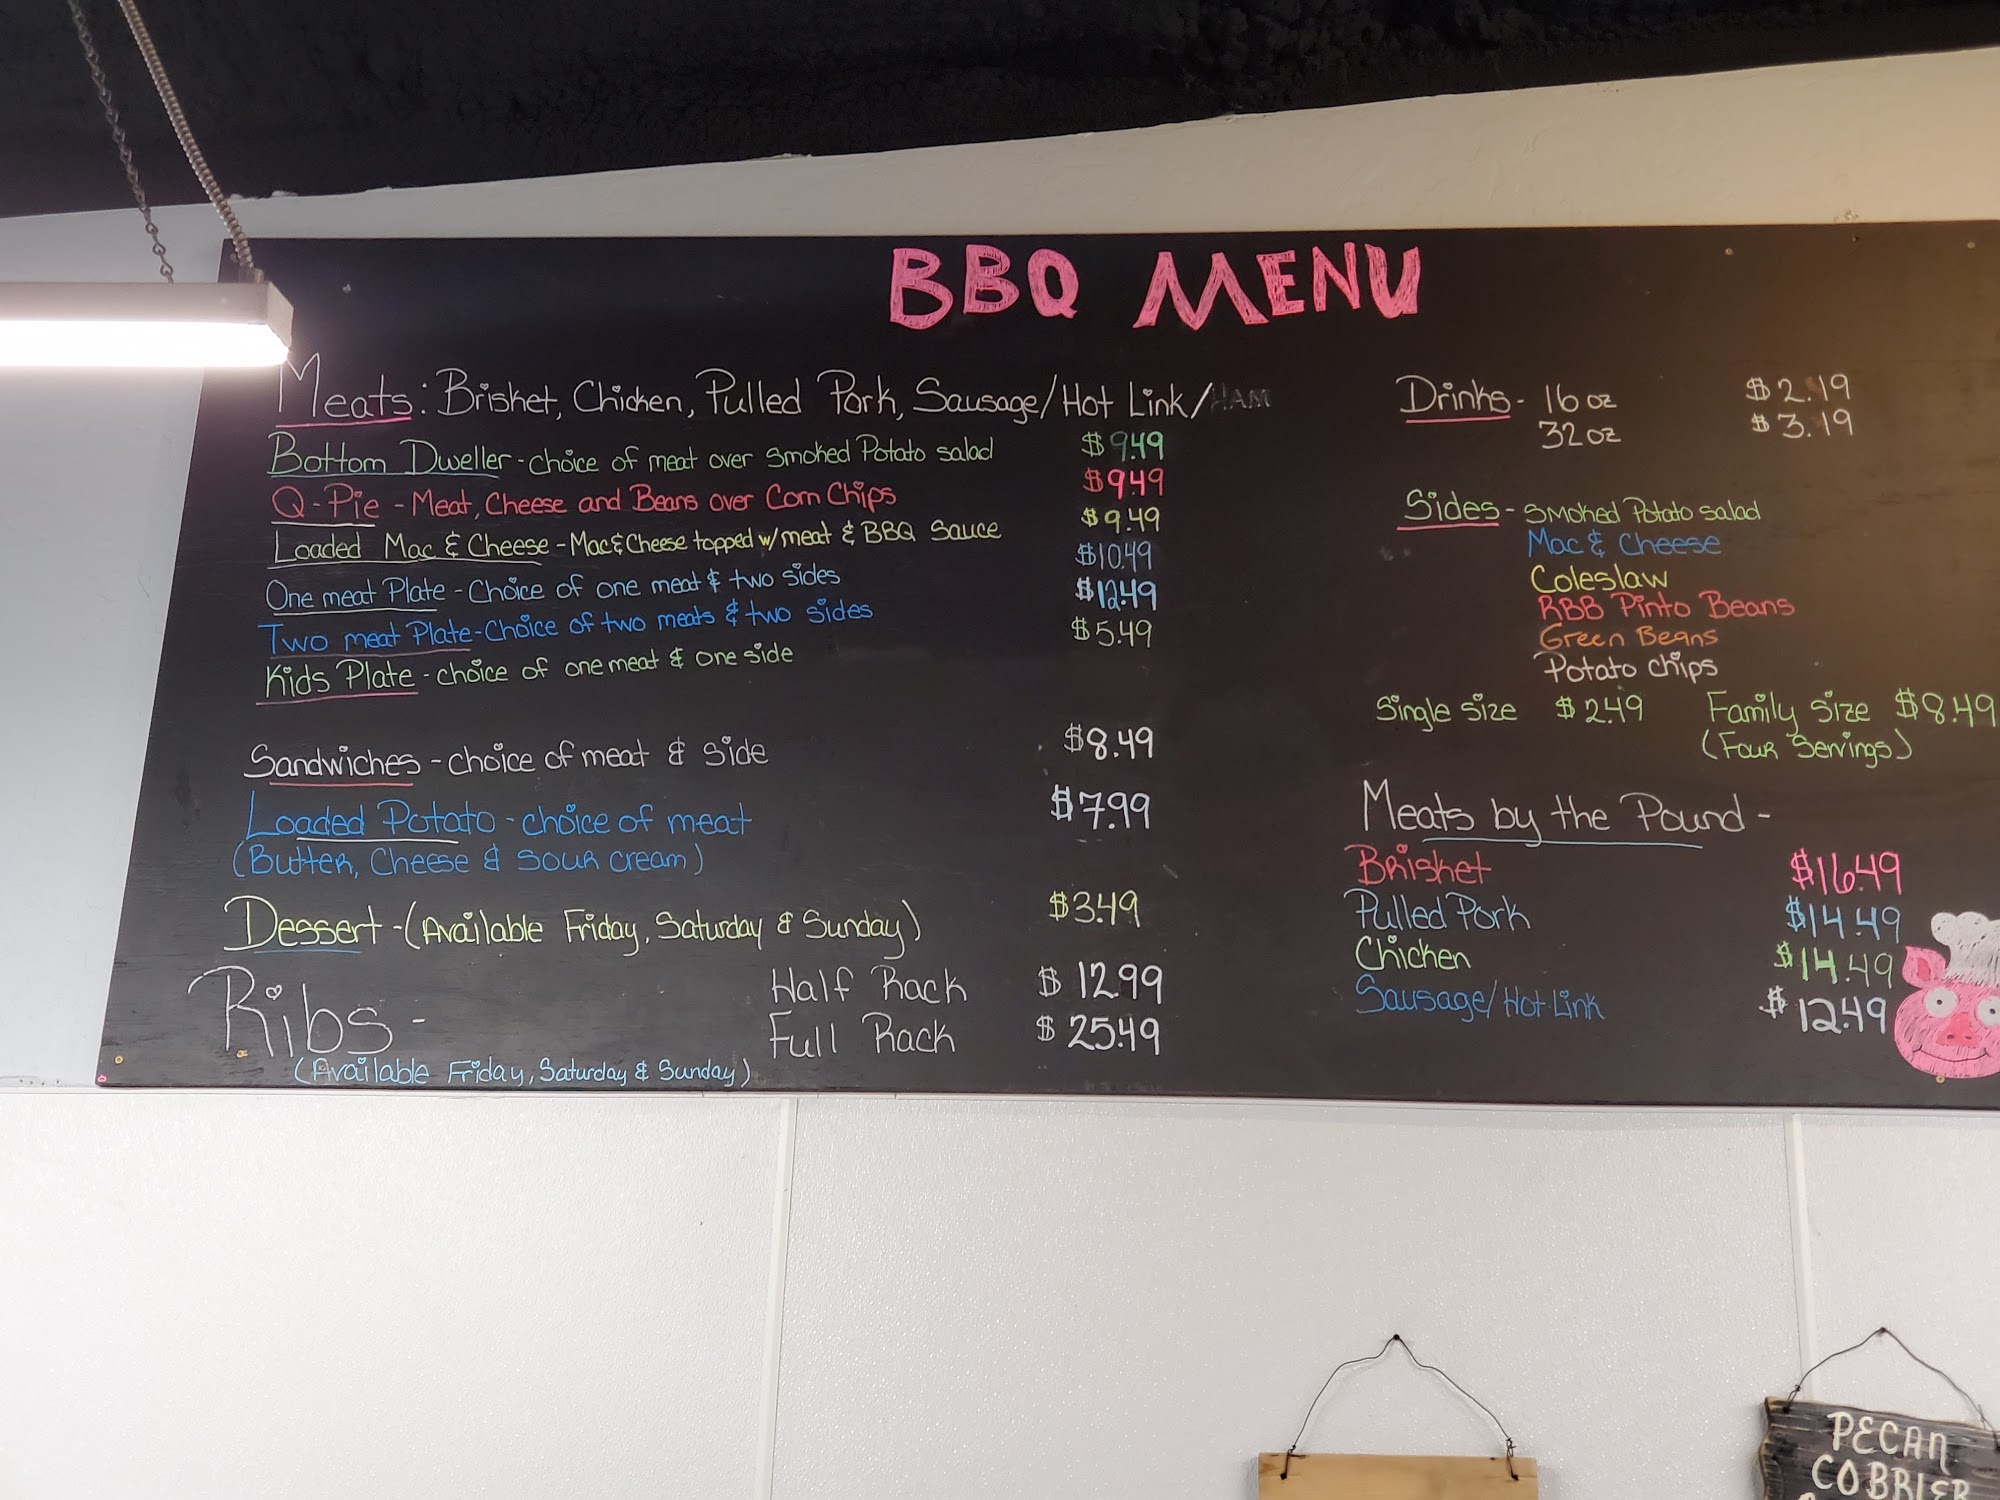 BBQ MENU
Meats: Brisket, Chicken, Pulled Pork, Sausage/Hot Link/HAM
Bottom Dweller - choice of meat over smoked Potato salad $9.49
Q-Pie - Meat, Cheese and Beans over Corn Chips $9.49
Loaded Mac & Cheese - Mac & Cheese topped w/meat & BBQ Sauce $9.49
One meat Plate - Choice of one meat & two sides $10.49
Two meat Plate - Choice of two meats & two sides $12.49
Kids Plate - choice of one meat & one side $5.49
Sandwiches - choice of meat & side $8.49
Loaded Potato - choice of meat $7.99
(Butter, Cheese & Sour cream)
Dessert - (Available Friday, Saturday & Sunday) $3.49
Ribs - Half Rack $12.99
Full Rack $25.49
(Available Friday, Saturday & Sunday)
Drinks - 16 oz $2.19
32 oz $3.19
Sides - Smoked Potato salad
Mac & Cheese
Coleslaw
RBB Pinto Beans
Green Beans
Potato chips
Single size $2.49 Family size $8.49
(Four Servings)
Meats by the Pound -
Brisket $16.49
Pulled Pork $14.49
Chicken $14.49
Sausage/Hot Link $12.49
PECAN
COBBLER